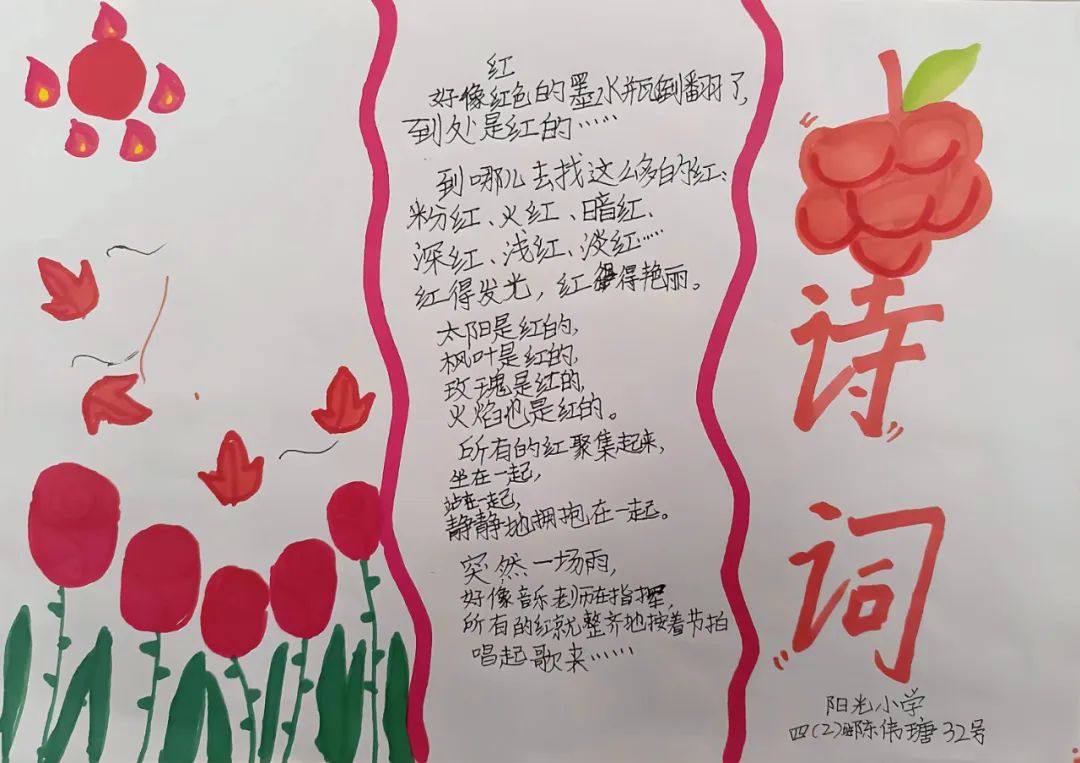 红
好像红色的墨水瓶倒翻了,
到处是红的……
到哪儿去找这么多的红:
粉红、火红、暗红、
深红、浅红、淡红……
红得发光,红得艳丽。
太阳是红的,
枫叶是红的,
玫瑰是红的,
火焰也是红的。
所有的红聚集起来,
坐在一起,
站在一起,
静静地拥抱在一起。
突然一场雨,
好像音乐老师在指挥,
所有的红就整齐地按着节拍
唱起歌来……
“诗”
“词”
阳光小学
四(2)班陈伟瑭32号